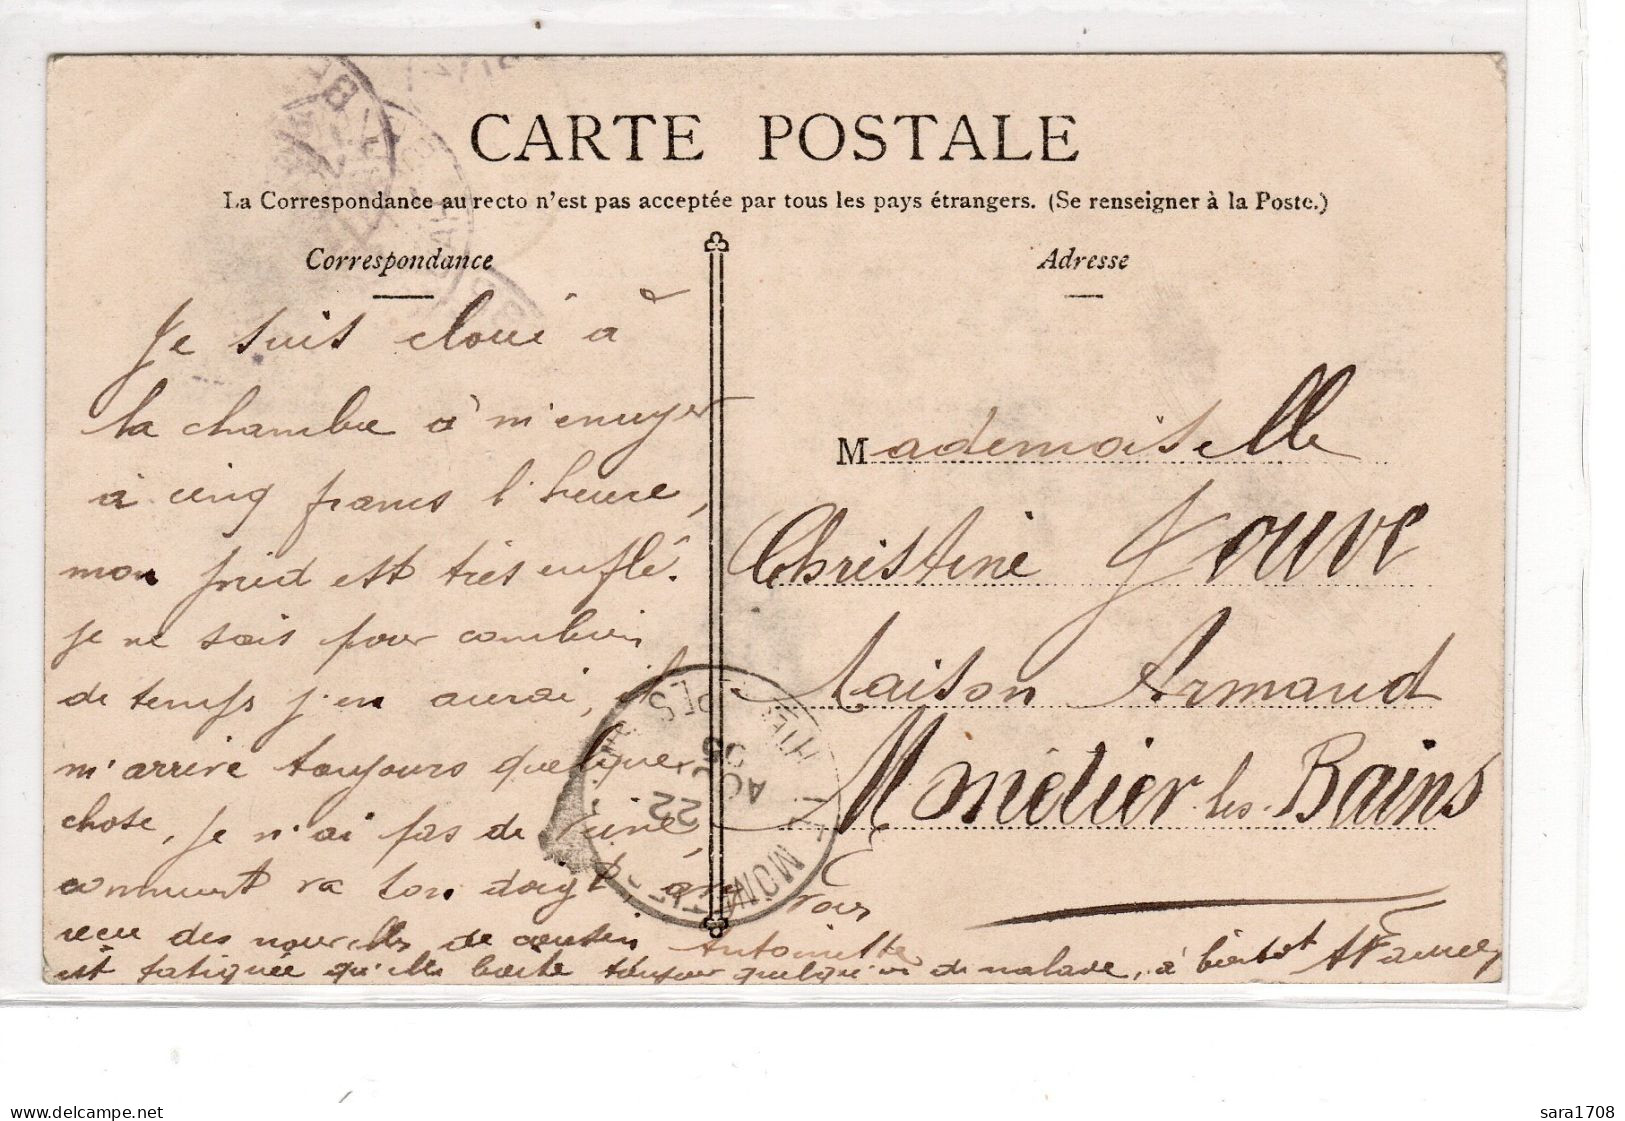 CARTE POSTALE
La Correspondance au recto n'est pas acceptée par tous les pays étrangers. (Se renseigner à la Poste.)
Correspondance
Je suis cloué à
la chambre à m'enuyer
à cinq francs l'heure,
mon pied est très enflé.
je ne sais pour combien
de temps j'en aurai, il
m'arrive toujours quelque
chose, je n'ai pas de veine,
comment va ton doigt, avez vous
reçu des nouvelles de cousin Antoinette
est fatiguée qu'elle toujour quelqu'un de malade, à bientot
Adresse
Mademoiselle
Christine Jouve
Maison Armand
Monêtier les Bains
LE MONETIER
HTES ALPES
22 AOUT 05
delcampe.net
sara1708